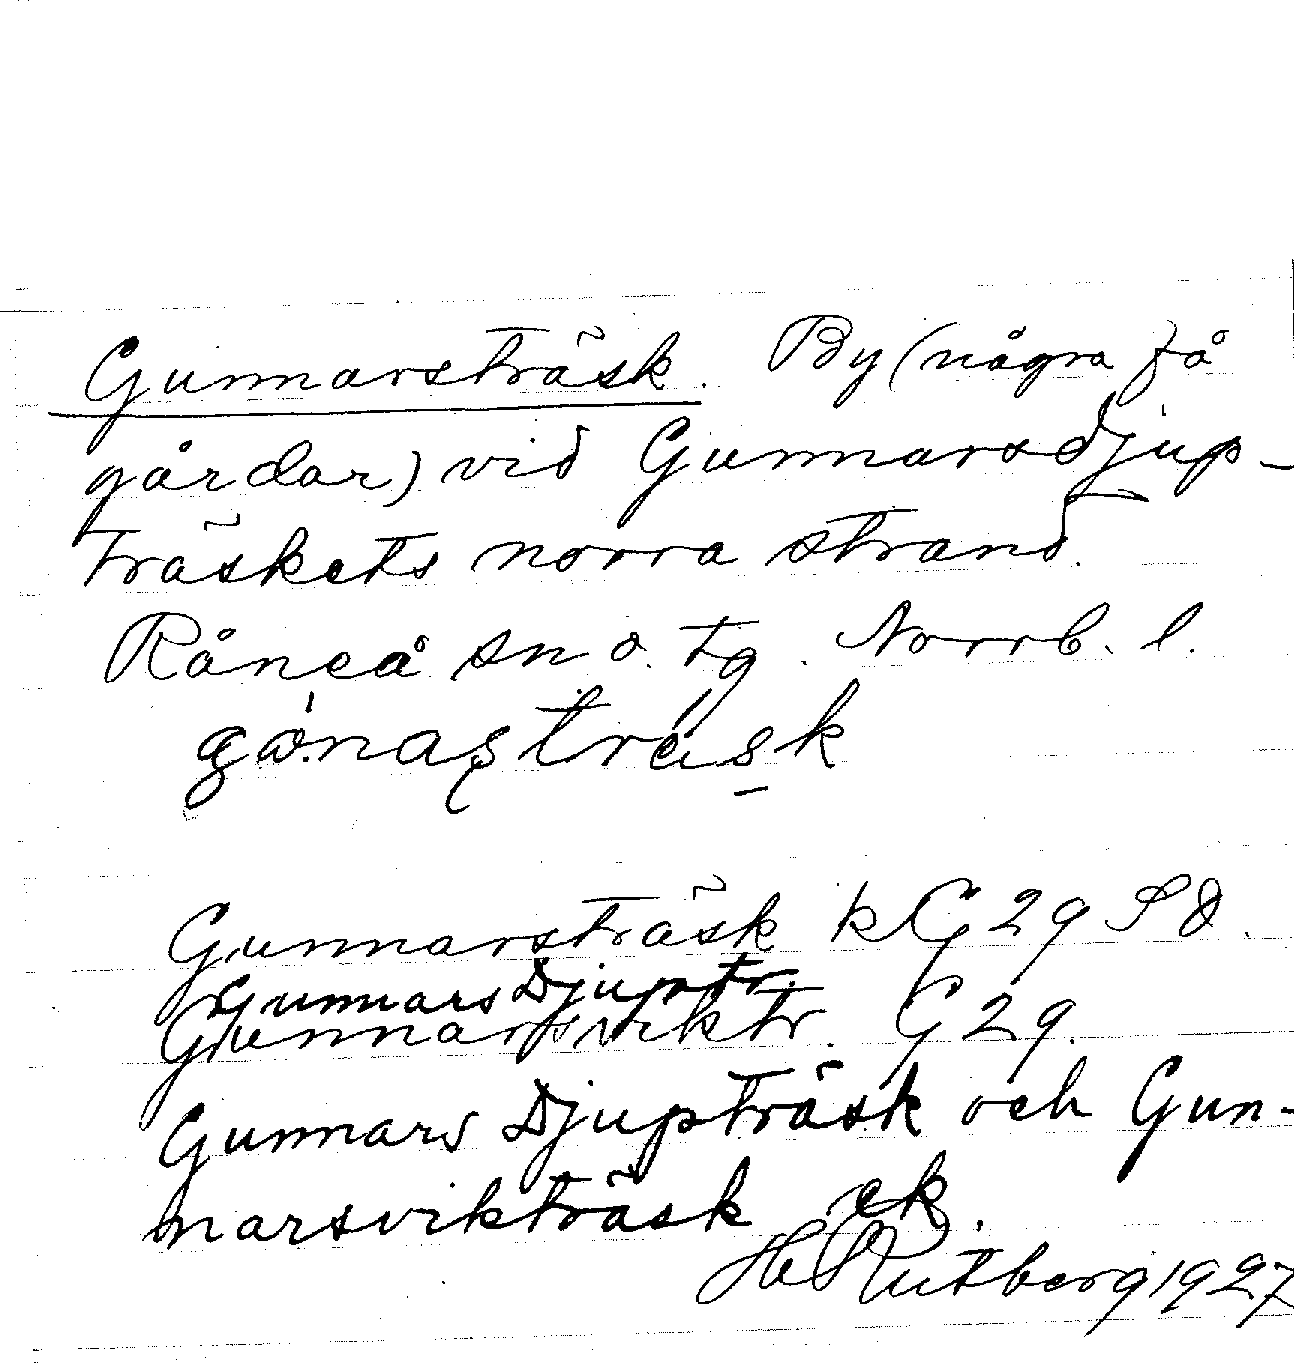 Gunnarsträsk. By (några få
gårdar) vid Gunnarsdjup-
träskets norra strand.
Råneå sn o. tg. Norrb. l.
Gunnarsträsk k G 29 SO.
Gunnars Djuptr.
Gunnarsviktr. G 29.
Gunnars Djupträsk och Gun-
narsvikträsk ek.
H Rutberg 1927